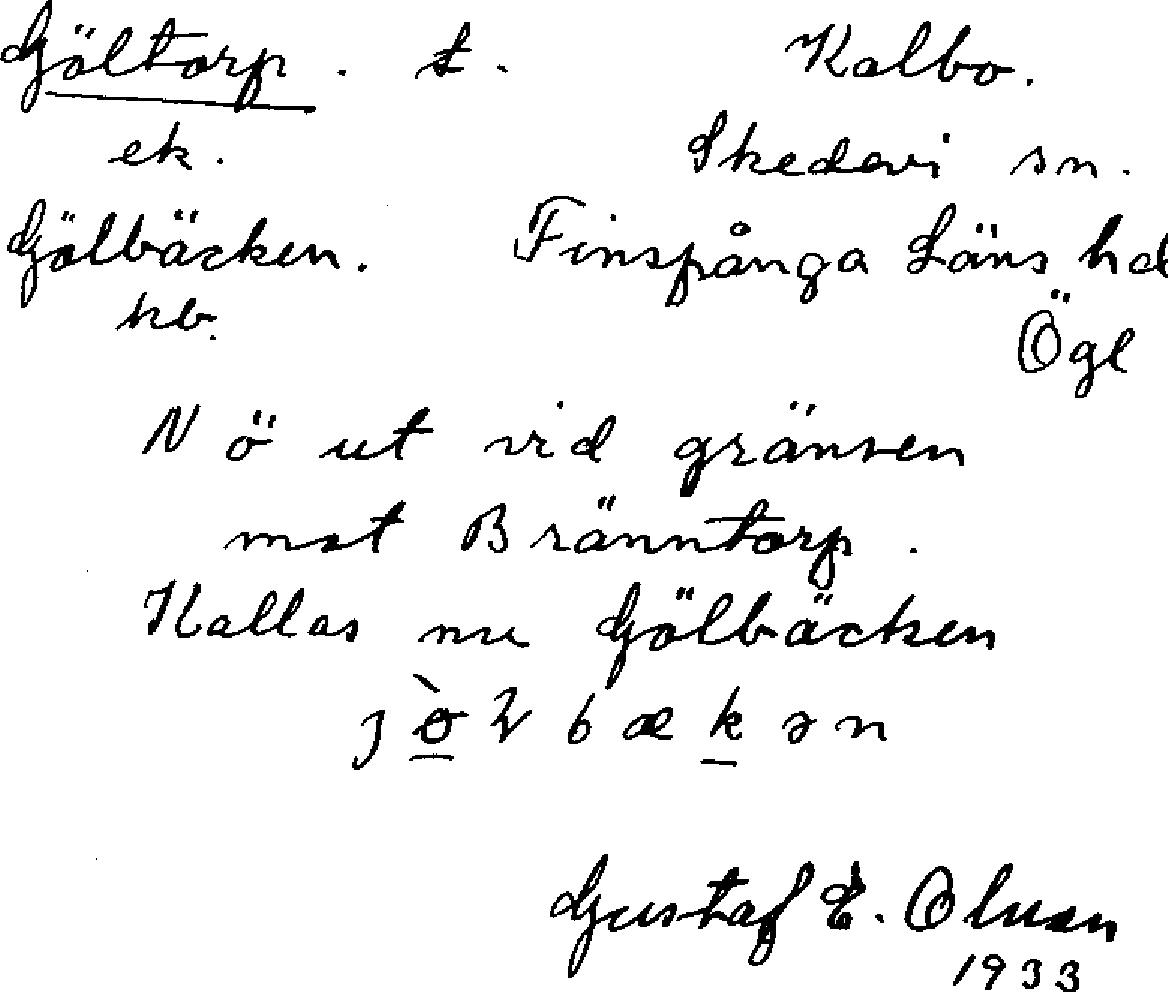 Göltorp. t. Kalbo.
ek. Skedevi sn.
Gölbäcken. Finspånga Läns hd
kb. Ögl
N ö ut vid gränsen
mot Bränntorp.
Kallas nu Gölbäcken
Gustaf E. Olsson
1933